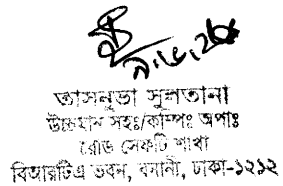 ৯.৮.২৫
তাসনুভা সুলতানা
উচ্চমান সহঃ/কাম্পিঃ অপাঃ
রোড সেফটি শাখা
বিআরটিএ ভবন, বনানী, ঢাকা-১২১২